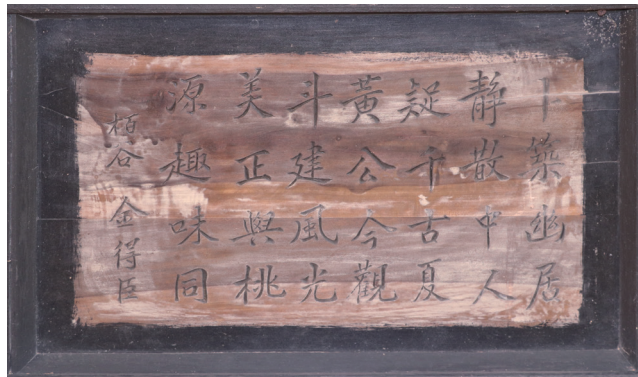 卜築幽居
静散中人
疑千古夏
黃公今觀
斗建風光
美正與桃
源趣味同
栢谷 金得臣